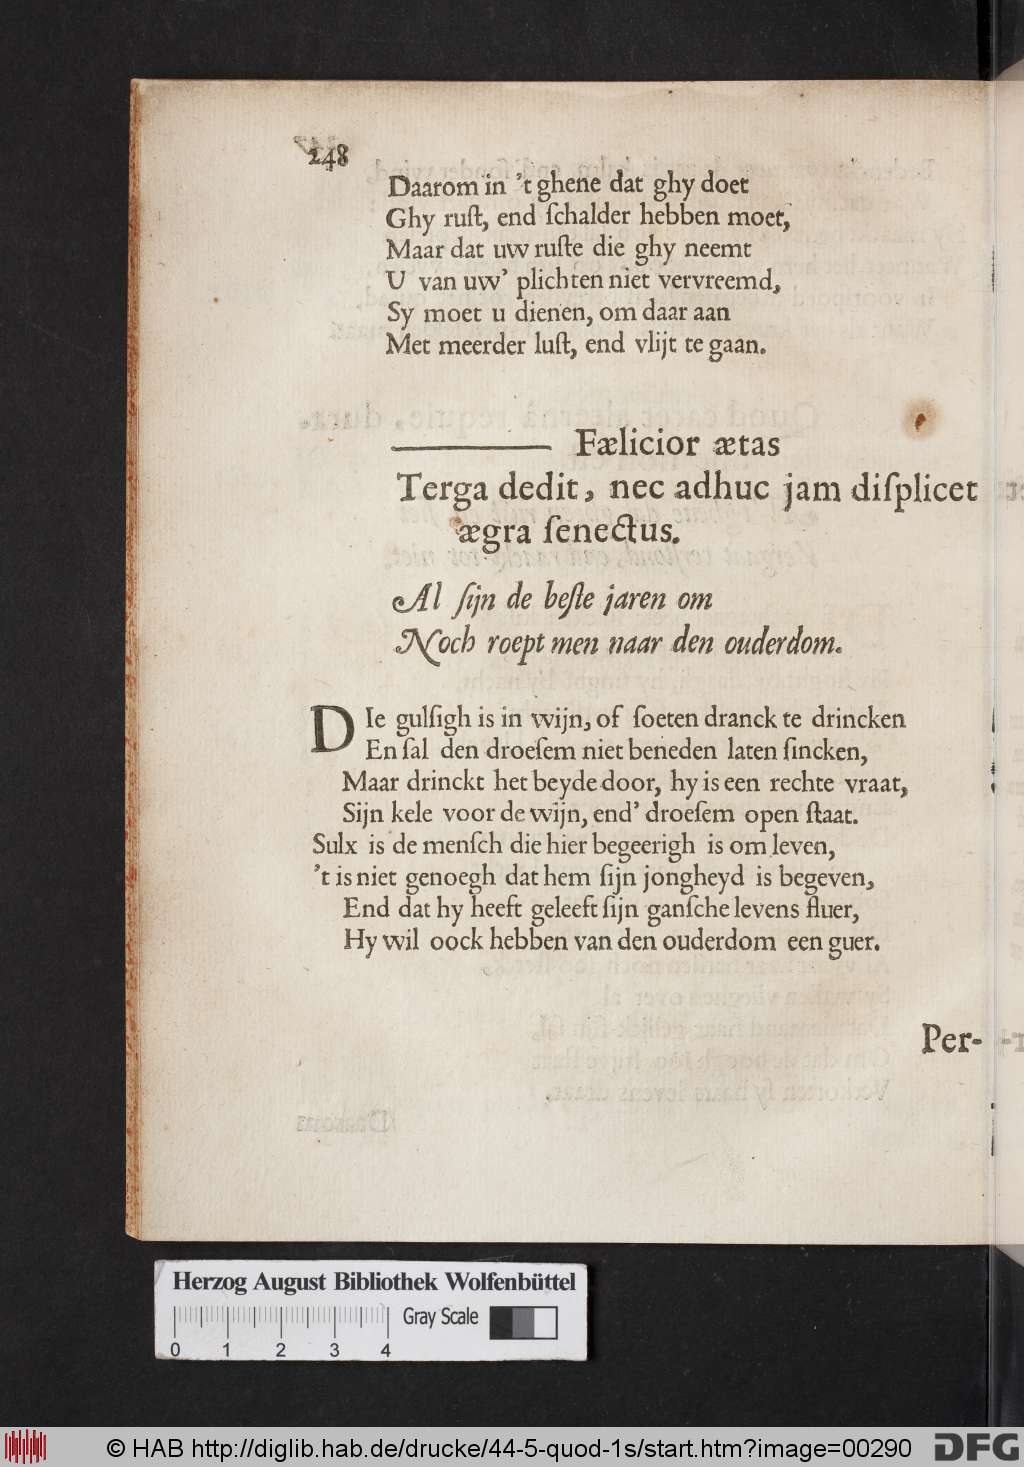 248
Daarom in 't ghene dat ghy doet
Ghy ruſt, end ſchalder hebben moet,
Maar dat uw ruſte die ghy neemt
U van uw' plichten niet vervreemd,
Sy moet u dienen, om daar aan
Met meerder luſt, end vlijt te gaan.
Fælicior ætas
Terga dedit, nec adhuc jam diſplicet
ægra ſenectus.
Al ſijn de beſte jaren om
Noch roept men naar den ouderdom.
DIe gulſigh is in wijn, of ſoeten dranck te drincken
En ſal den droeſem niet beneden laten ſincken,
Maar drinckt het beyde door, hy is een rechte vraat,
Sijn kele voor de wijn, end' droeſem open ſtaat.
Sulx is de menſch die hier begeerigh is om leven,
't is niet genoegh dat hem ſijn jongheyd is begeven,
End dat hy heeft geleeft ſijn ganſche levens fluer,
Hy wil oock hebben van den ouderdom een guer.
Per-
Herzog August Bibliothek Wolfenbüttel
Gray Scale
0 1 2 3 4
© HAB http://diglib.hab.de/drucke/44-5-quod-1s/start.htm?image=00290
DFG